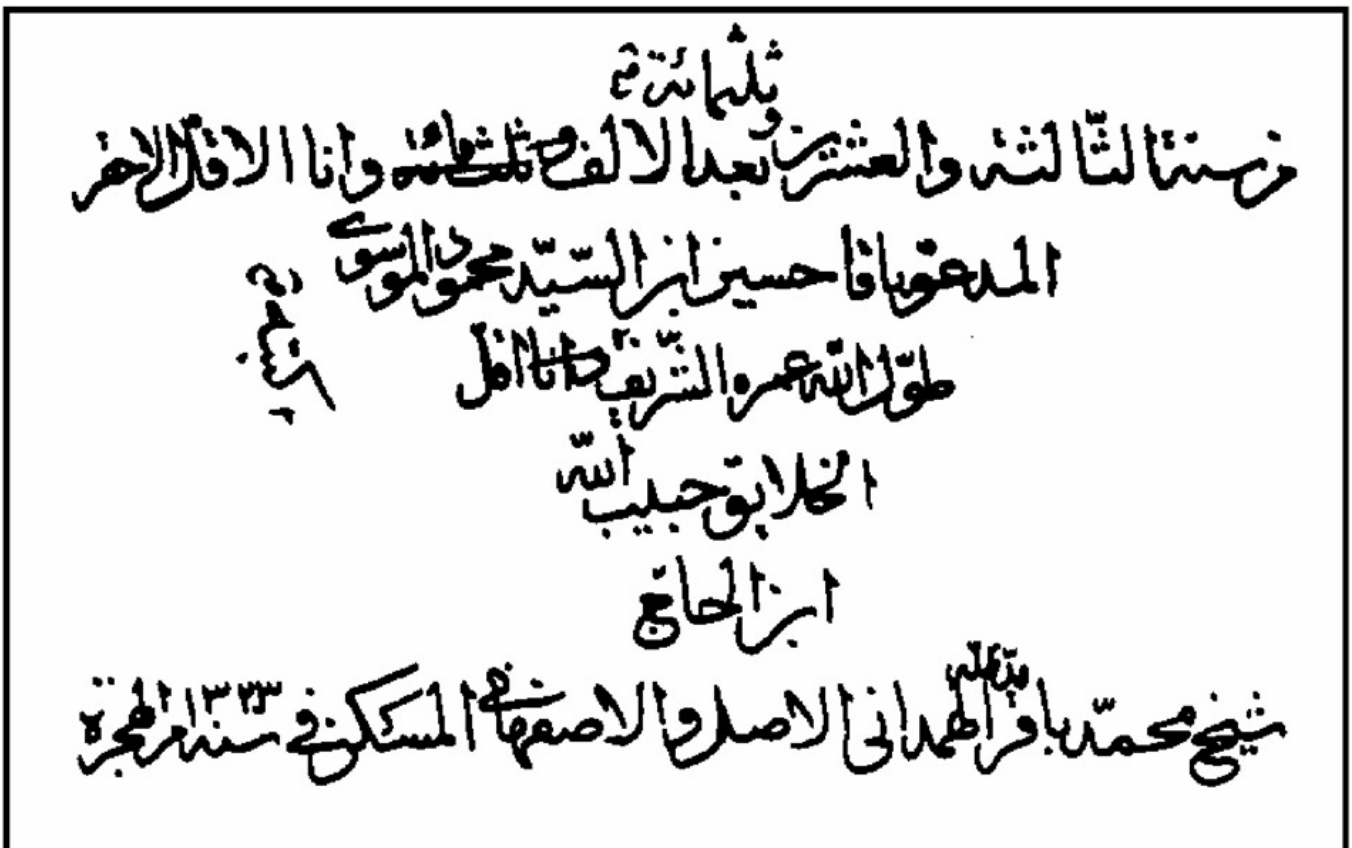 وثلثمائة م
من سنة الثالثة والعشرين بعد الالف وثلثمائة وانا الاقل الاحقر
المدعو باقا حسين ابن السيد محمود الموسوي
طوّل الله عمره الشريف وانا اقل
الخلايق حبيب الله
ابن الحاج
شيخ محمّد باقر الهمداني الاصل والاصفهاني المسكن في سنه ١٣٢٣ من الهجرة